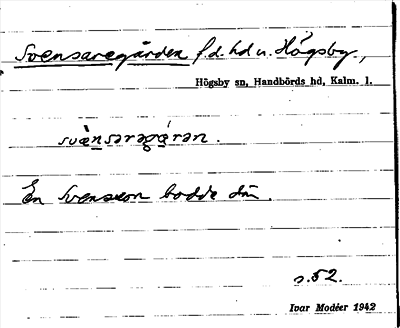 Svensaregården f.d. hd u. Högsby,
Högsby sn, Handbörds hd, Kalm. l.
svȁnsaragáran.
En Svensson bodde där.
s.52.
Ivar Modéer 1942